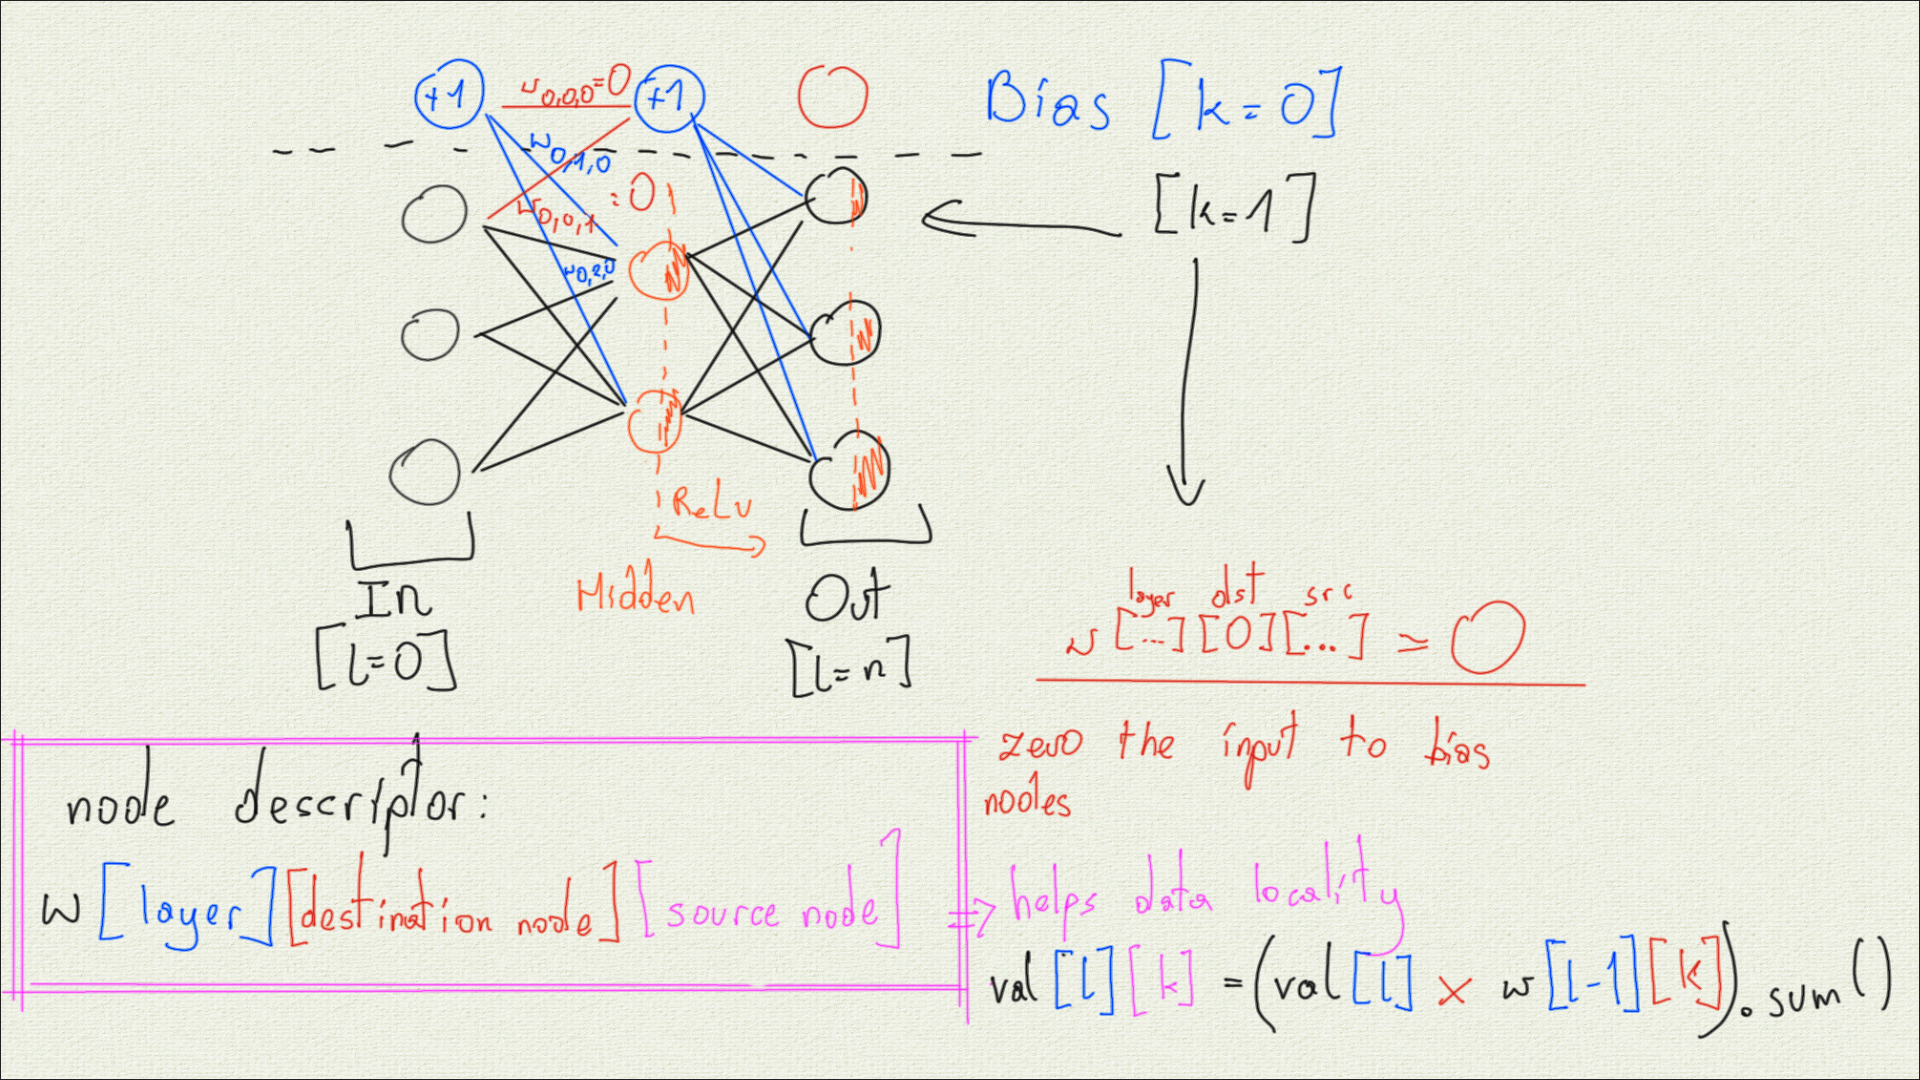 +1 w0,0,0=0 +1
Bias [k=0]
w0,1,0
=0
w0,0,1
[k=1]
w0,2,0
ReLu
Hidden
In
Out
[l=0]
[l=n]
layer dst src
w[...][0][...] = 0
zero the input to bias
nodes
node descriptor:
w[layer][destination node][source node]
=> helps data locality
val[l][k] = (val[l] × w[l-1][k]).sum()